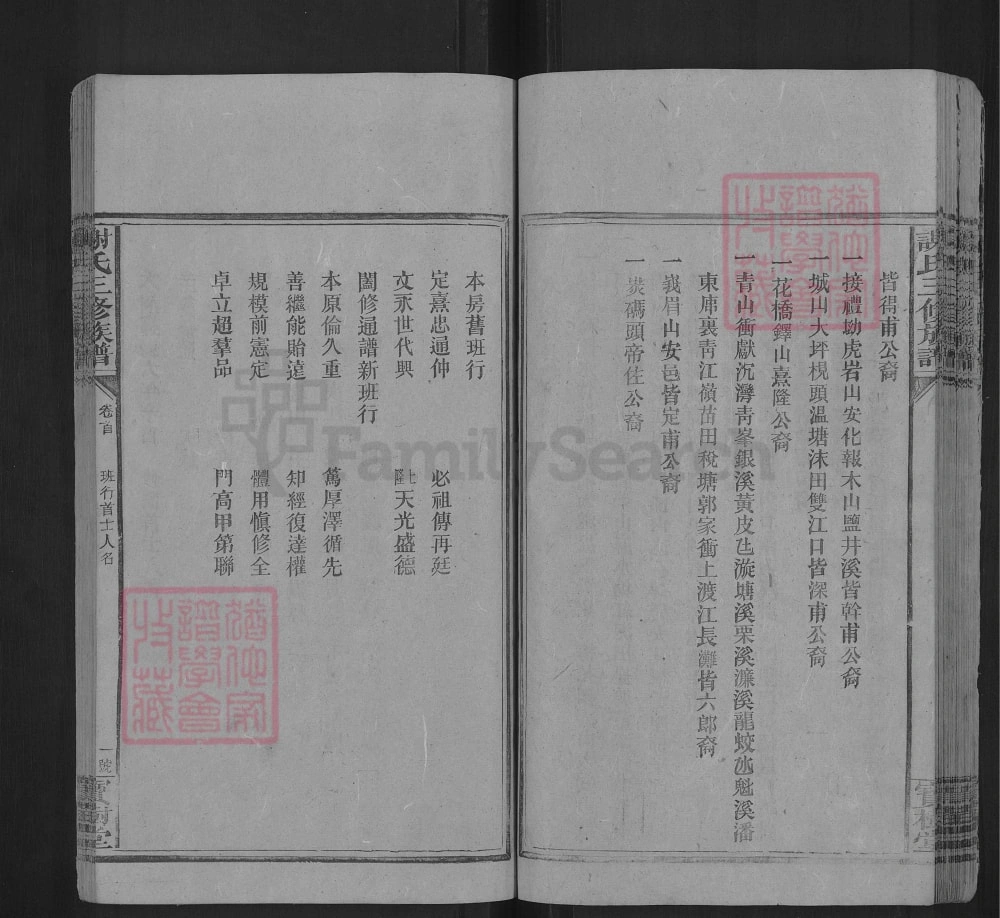 皆得甫公裔
一接禮坳虎岩山安化報木山鹽井溪皆幹甫公裔
一城山大坪梘頭温塘沫田雙江口皆深甫公裔
一花橋鐸山熹隆公裔
一青山衝獻沉灣靑峯銀溪黃皮凼漩塘溪栗溪濂溪龍蛟氹魁溪潘
東厍裏靑江嶺苗田稅塘郭家衝上渡江長灘皆六郎裔
一峩眉山安邑皆定甫公裔
一炭碼頭帝佐公裔
謝氏三修族譜
寶樹堂
本房舊班行
定熹忠通仲 必祖傳再廷
文永世代興 仕隆天光盛德
闔修通譜新班行
本原倫久重 篤厚澤循先
善繼能貽遠 知經復達權
規模前憲定 體用愼修全
卓立超羣品 門高甲第聯
謝氏三修族譜
卷首
班行首士人名
一號
寶樹堂
FamilySearch